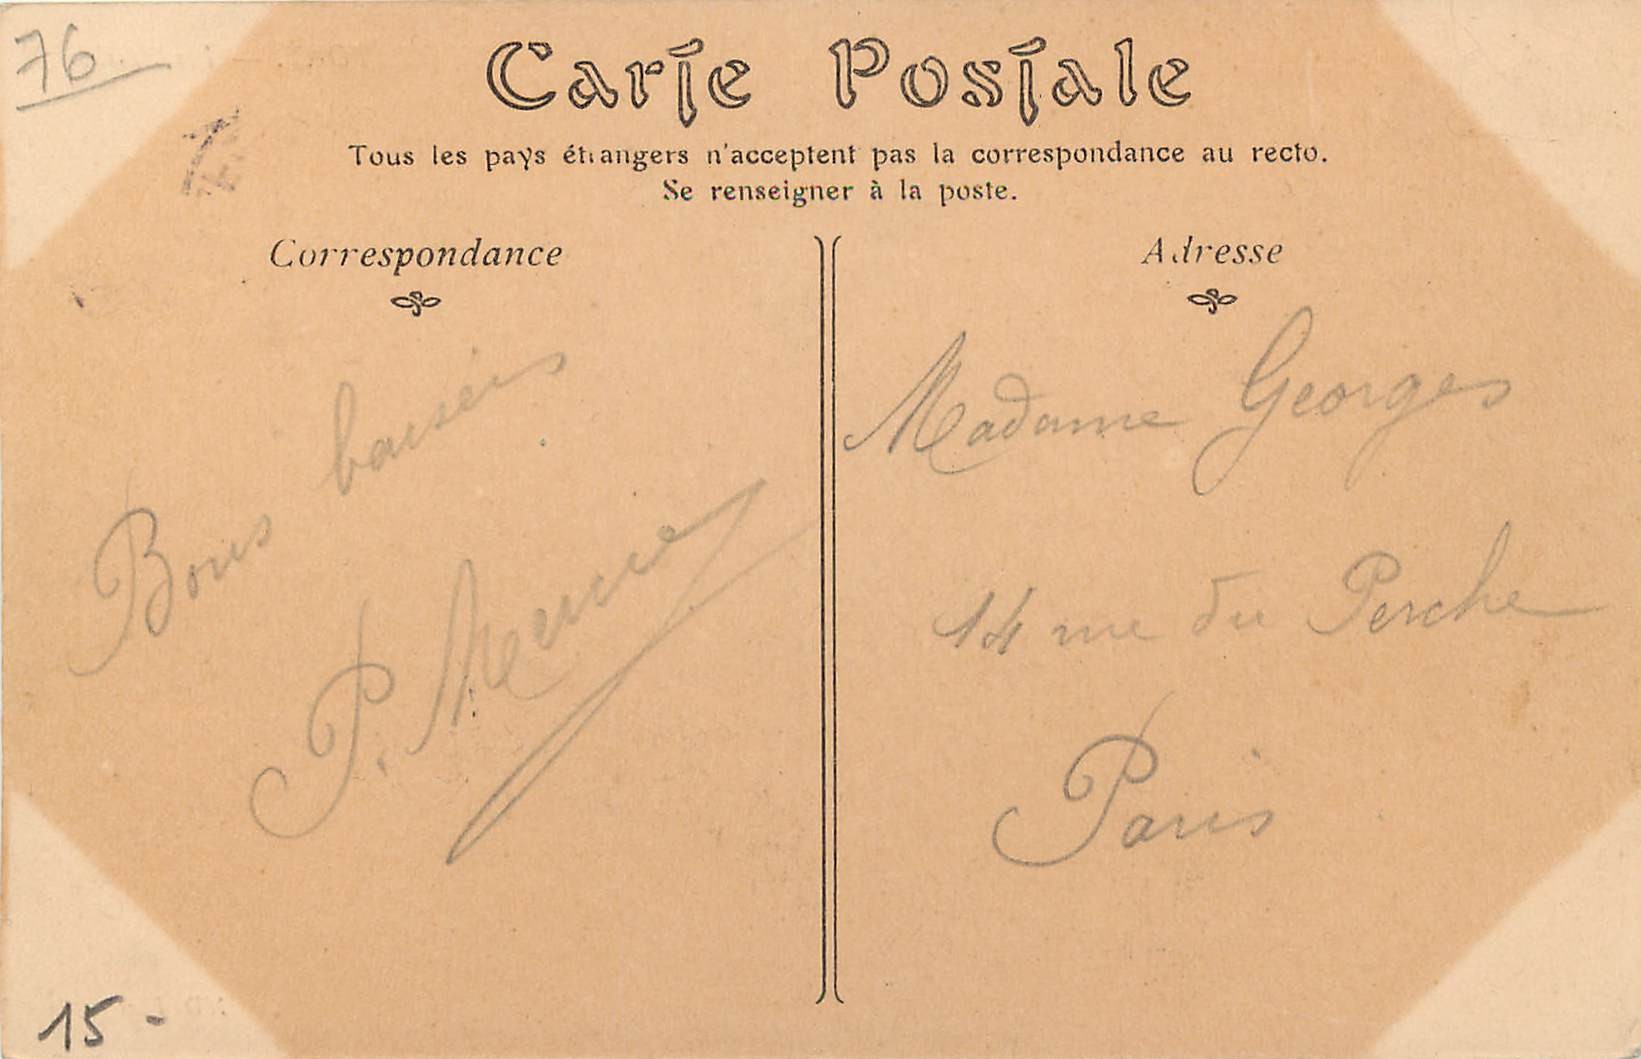 76
Carte Postale
Tous les pays étrangers n'acceptent pas la correspondance au recto.
Se renseigner à la poste.
Correspondance
Bons baisers
P.
15 -
Adresse
Madame Georges
14 rue du Perche
Paris